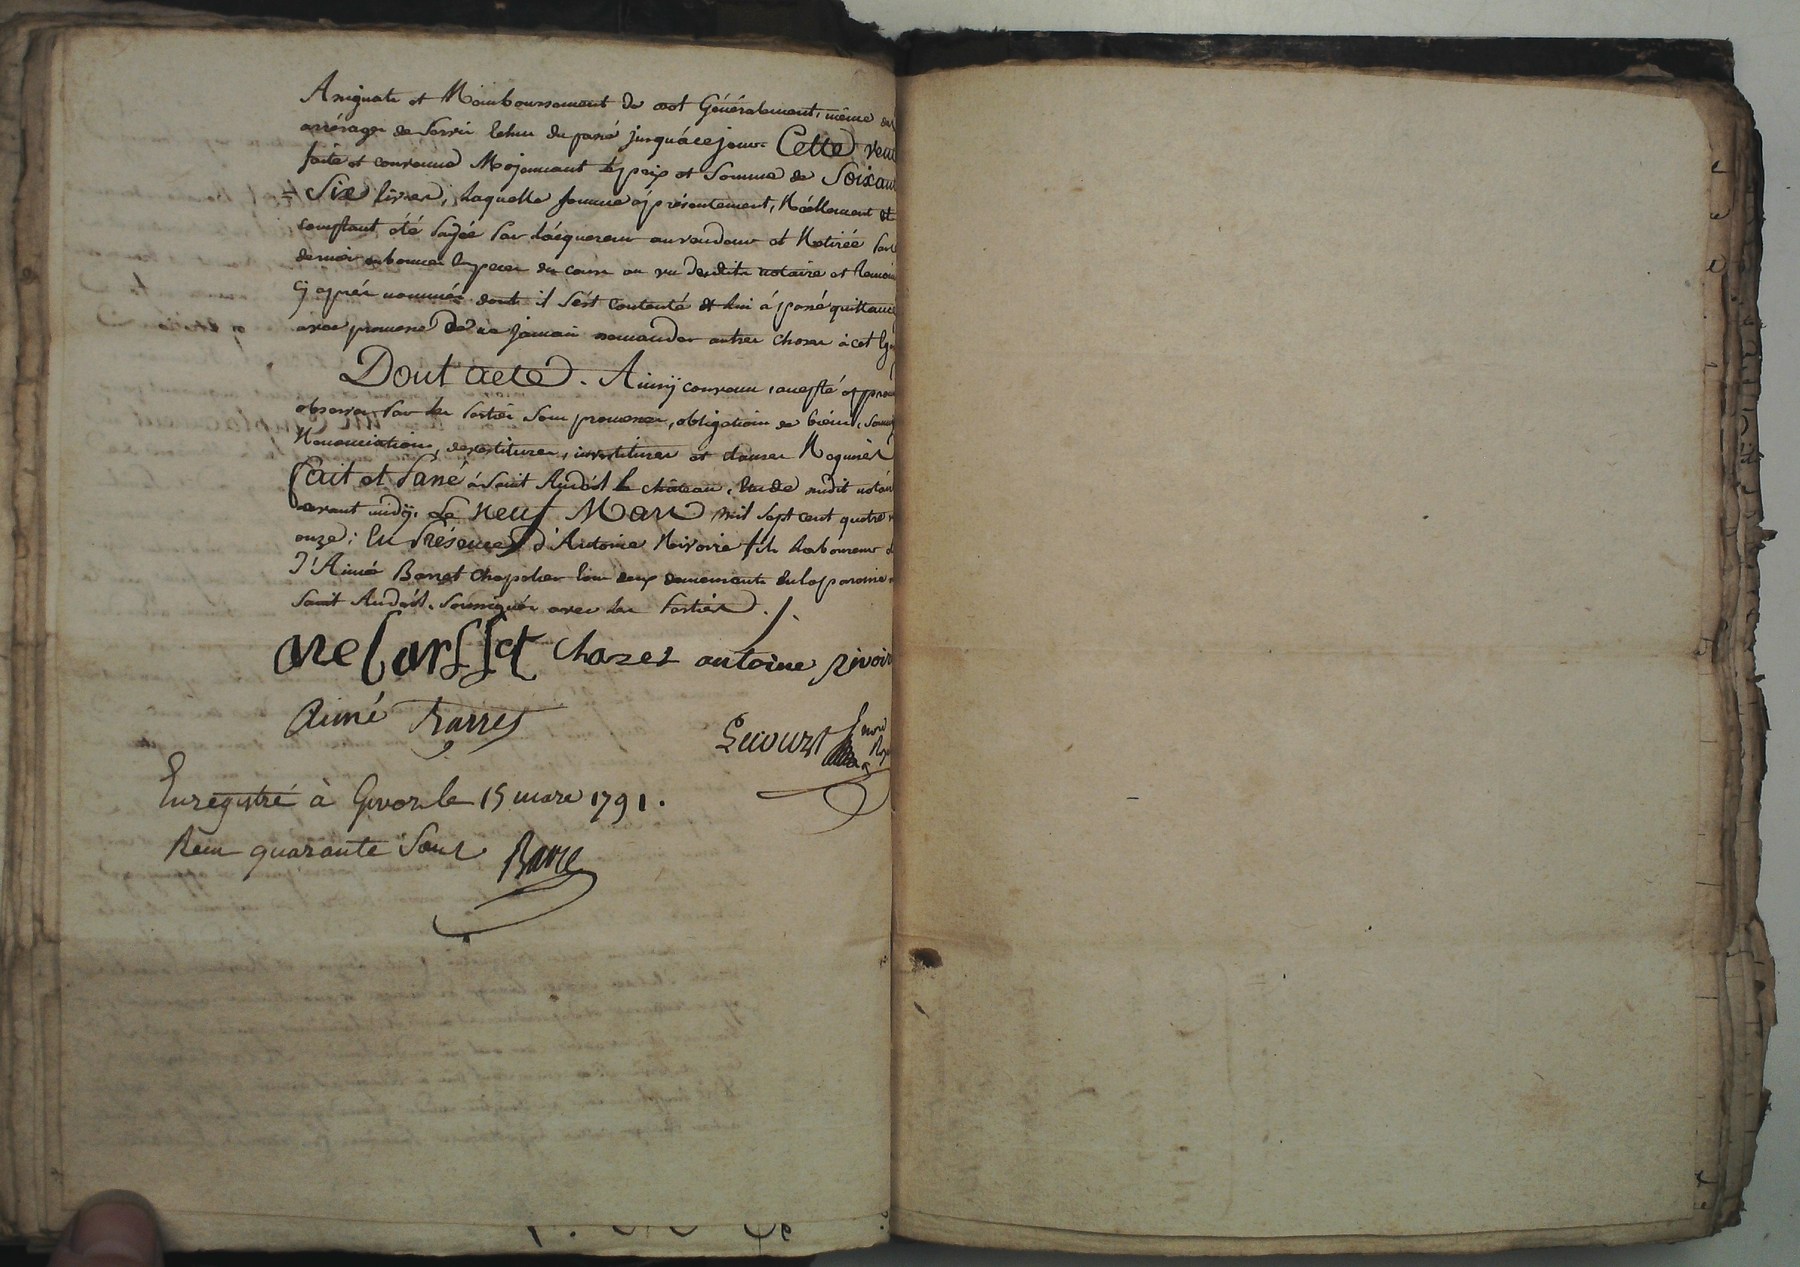 Assignats et Remboursement de cet Généralement, même des
arrérages de servis echus du passé jusqu'á ce jour. Cette vent
faite et convenue Mojennant le prix et somme de Soixan
Six livres; Laquelle somme a présentement, Réellement et
comptant été payée par L'acquereur au vendeur et Retirée par
dernier en bonnes Especes du cours au vu desdits notaire et temoin
Cy après nommés dont il s'est contenté et lui á passé quittance
avec promesse de ne jamais demander autres choses à cet Eg
Dont Acte. Ainsy convenu, accepté
observer par les parties sous promesses, obligation de biens, soum
Renonciations, devestitures, investitures et clauses Requises
Fait et Passé à Saint Andéol le château, Etude nudit notair
avant midÿ, Le Neuf Mars mil sept cent quatre v
onze; En Présences d'Antoine Rivoire fils Laboureur et
D'Aimé Barret Chapelier tous deux demeurants en la paroisse
Saint Andéol, soussignés avec les parties ./.
Chazet antoine rivoir
Aimé Barret
Lecourt
Enregistré à Givors le 15 mars 1791.
Reçu quarante Sous